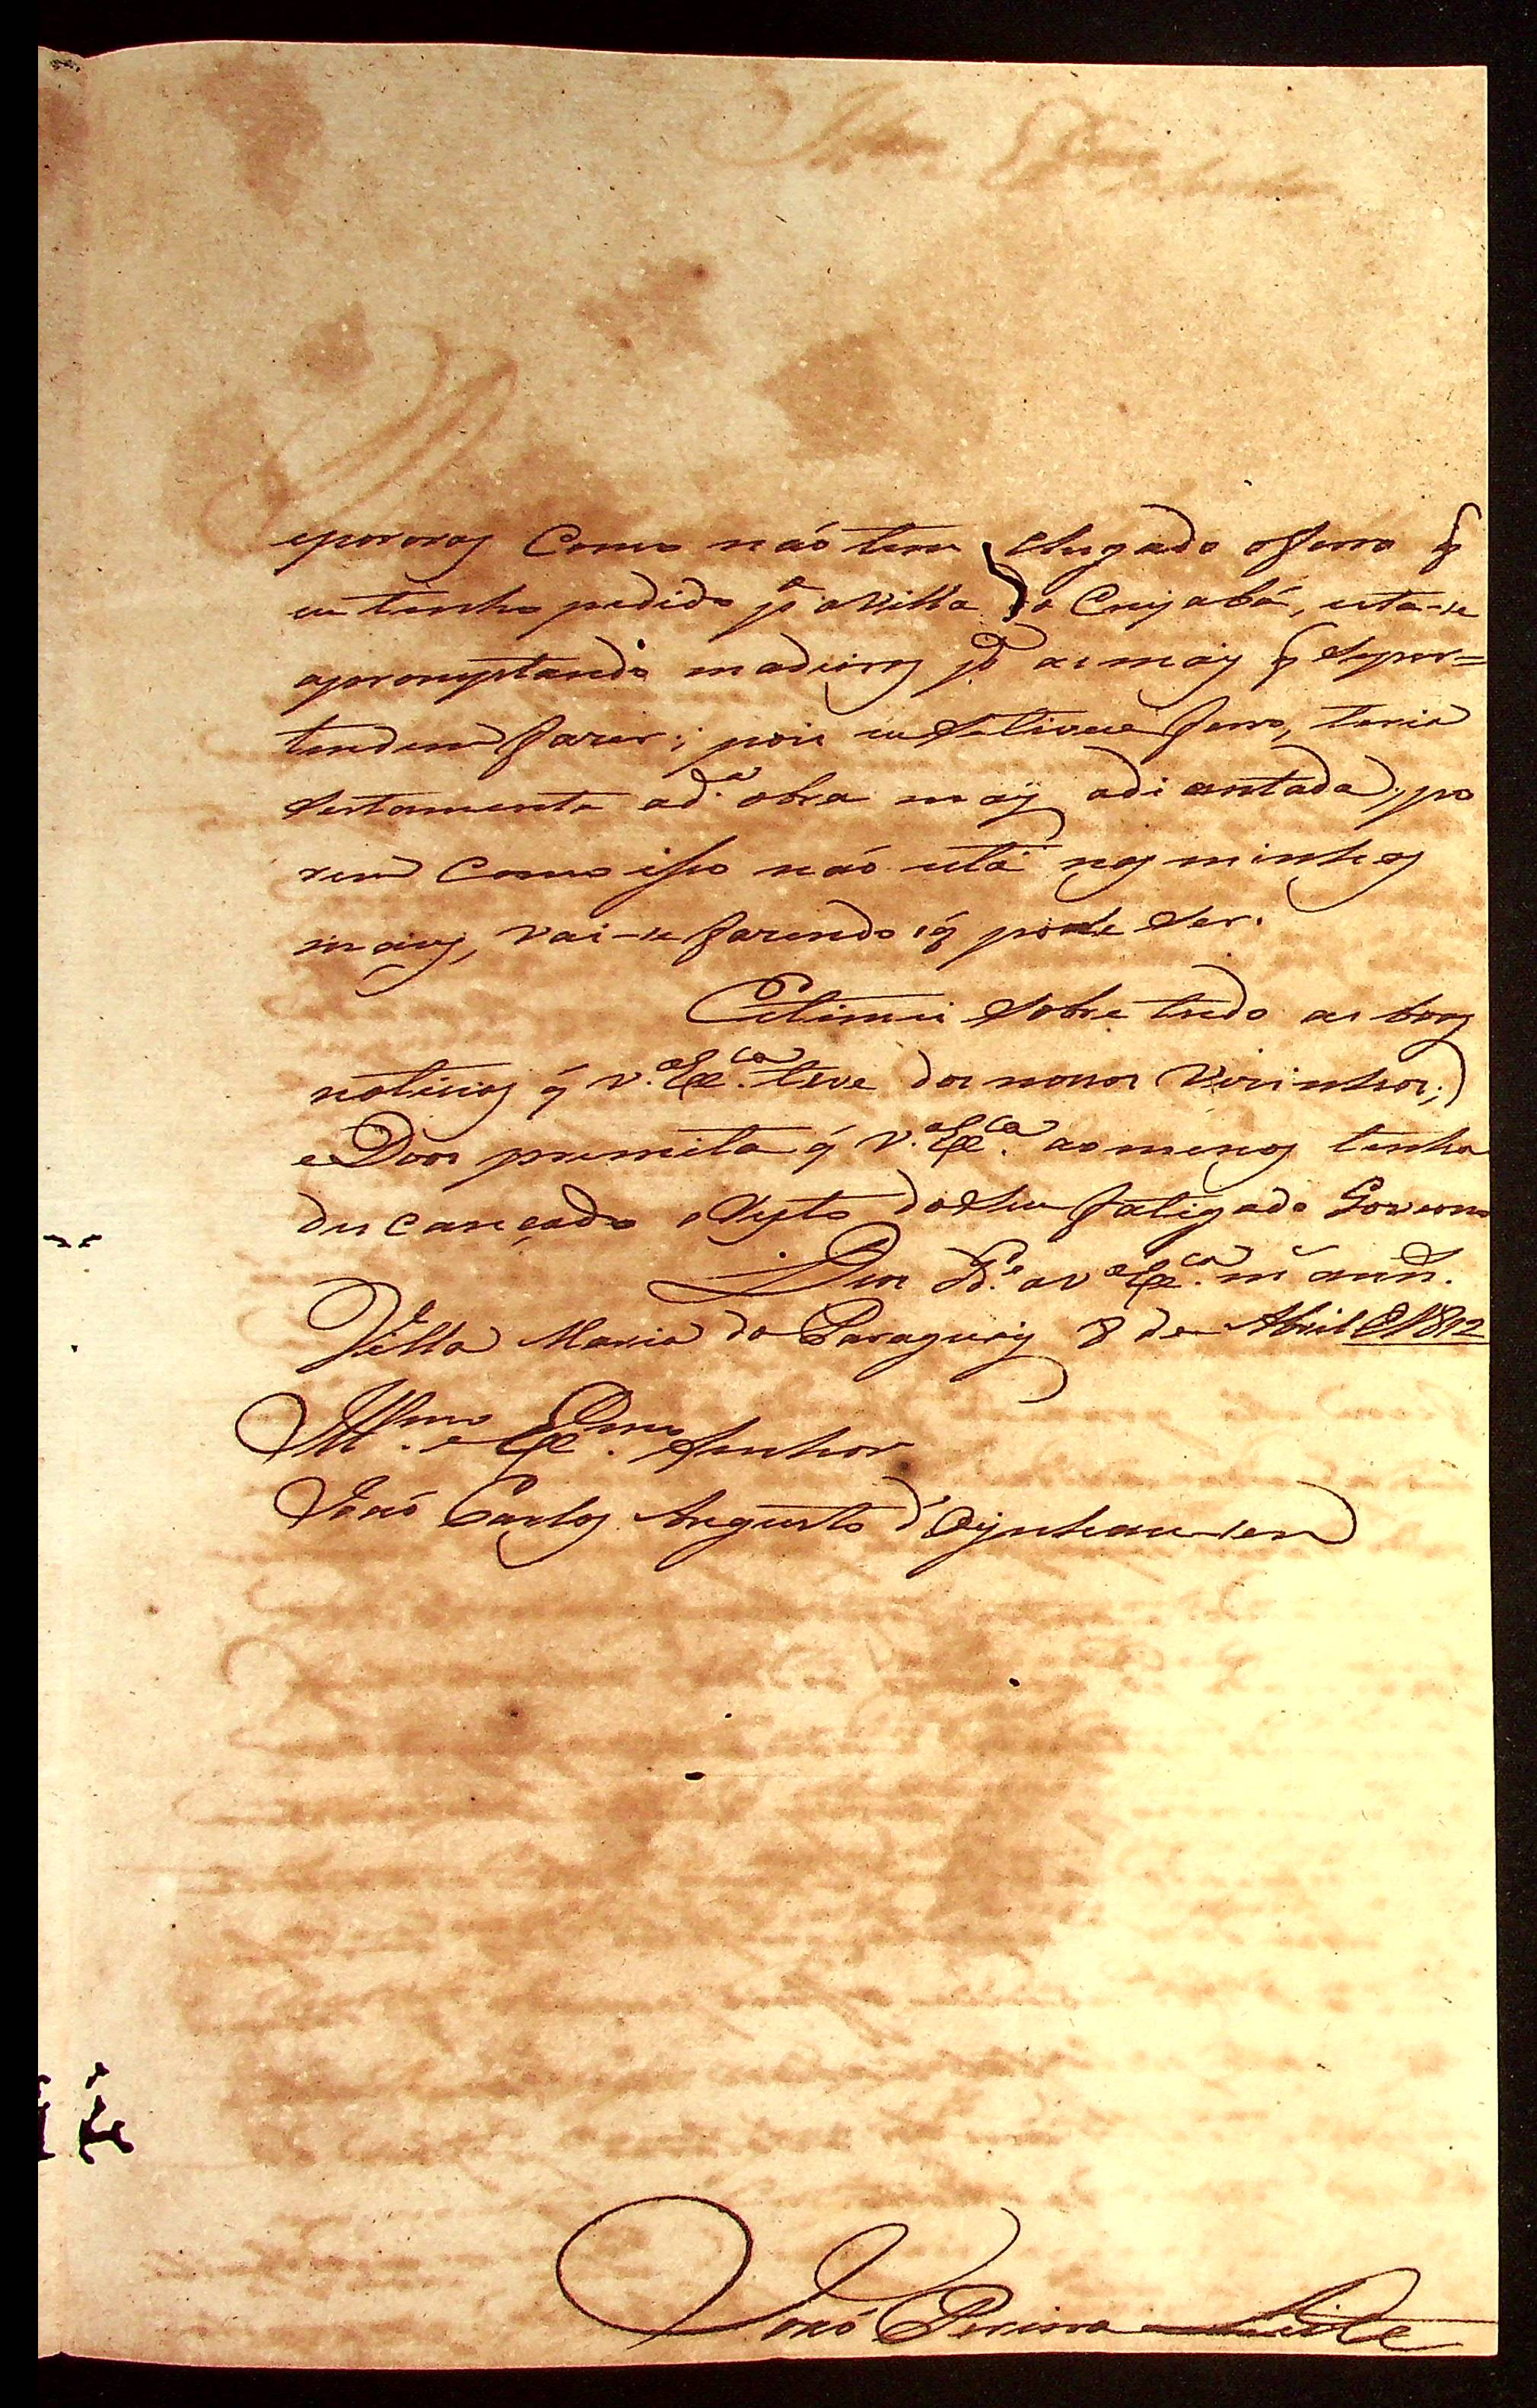 eporoas Como naõ tem chegado oferro q̃
eu tenho pedido p.ª aVilla do Cuyabá, esta-se
apromptando madeiras p.ª as mais q̃ Seper=
tendem fazer; pois eu Setivece ferro, teria
Sertamente ad.ª obra mais adiantada; po
rem Como isso naõ está nas minhas
maõs, vai-se fazendo oq̃ pode Ser.
Estimei Sobre tudo as boas
noticias q̃ V. Ex.ca teve dos nossos Vizinhos;
e Deos premita q̃ V. Ex.ca ao menos tenha
descançado o resto doSeu fatigado Governo
Deos G.e a V Ex.ca m.s ann.s
Villa Maria do Paraguay 8 de Abril D 1812
Ill.mo e Ex.mo Senhor
Joaõ Carlos Augusto d'Oÿnhausen
Joaõ Pereira Leite